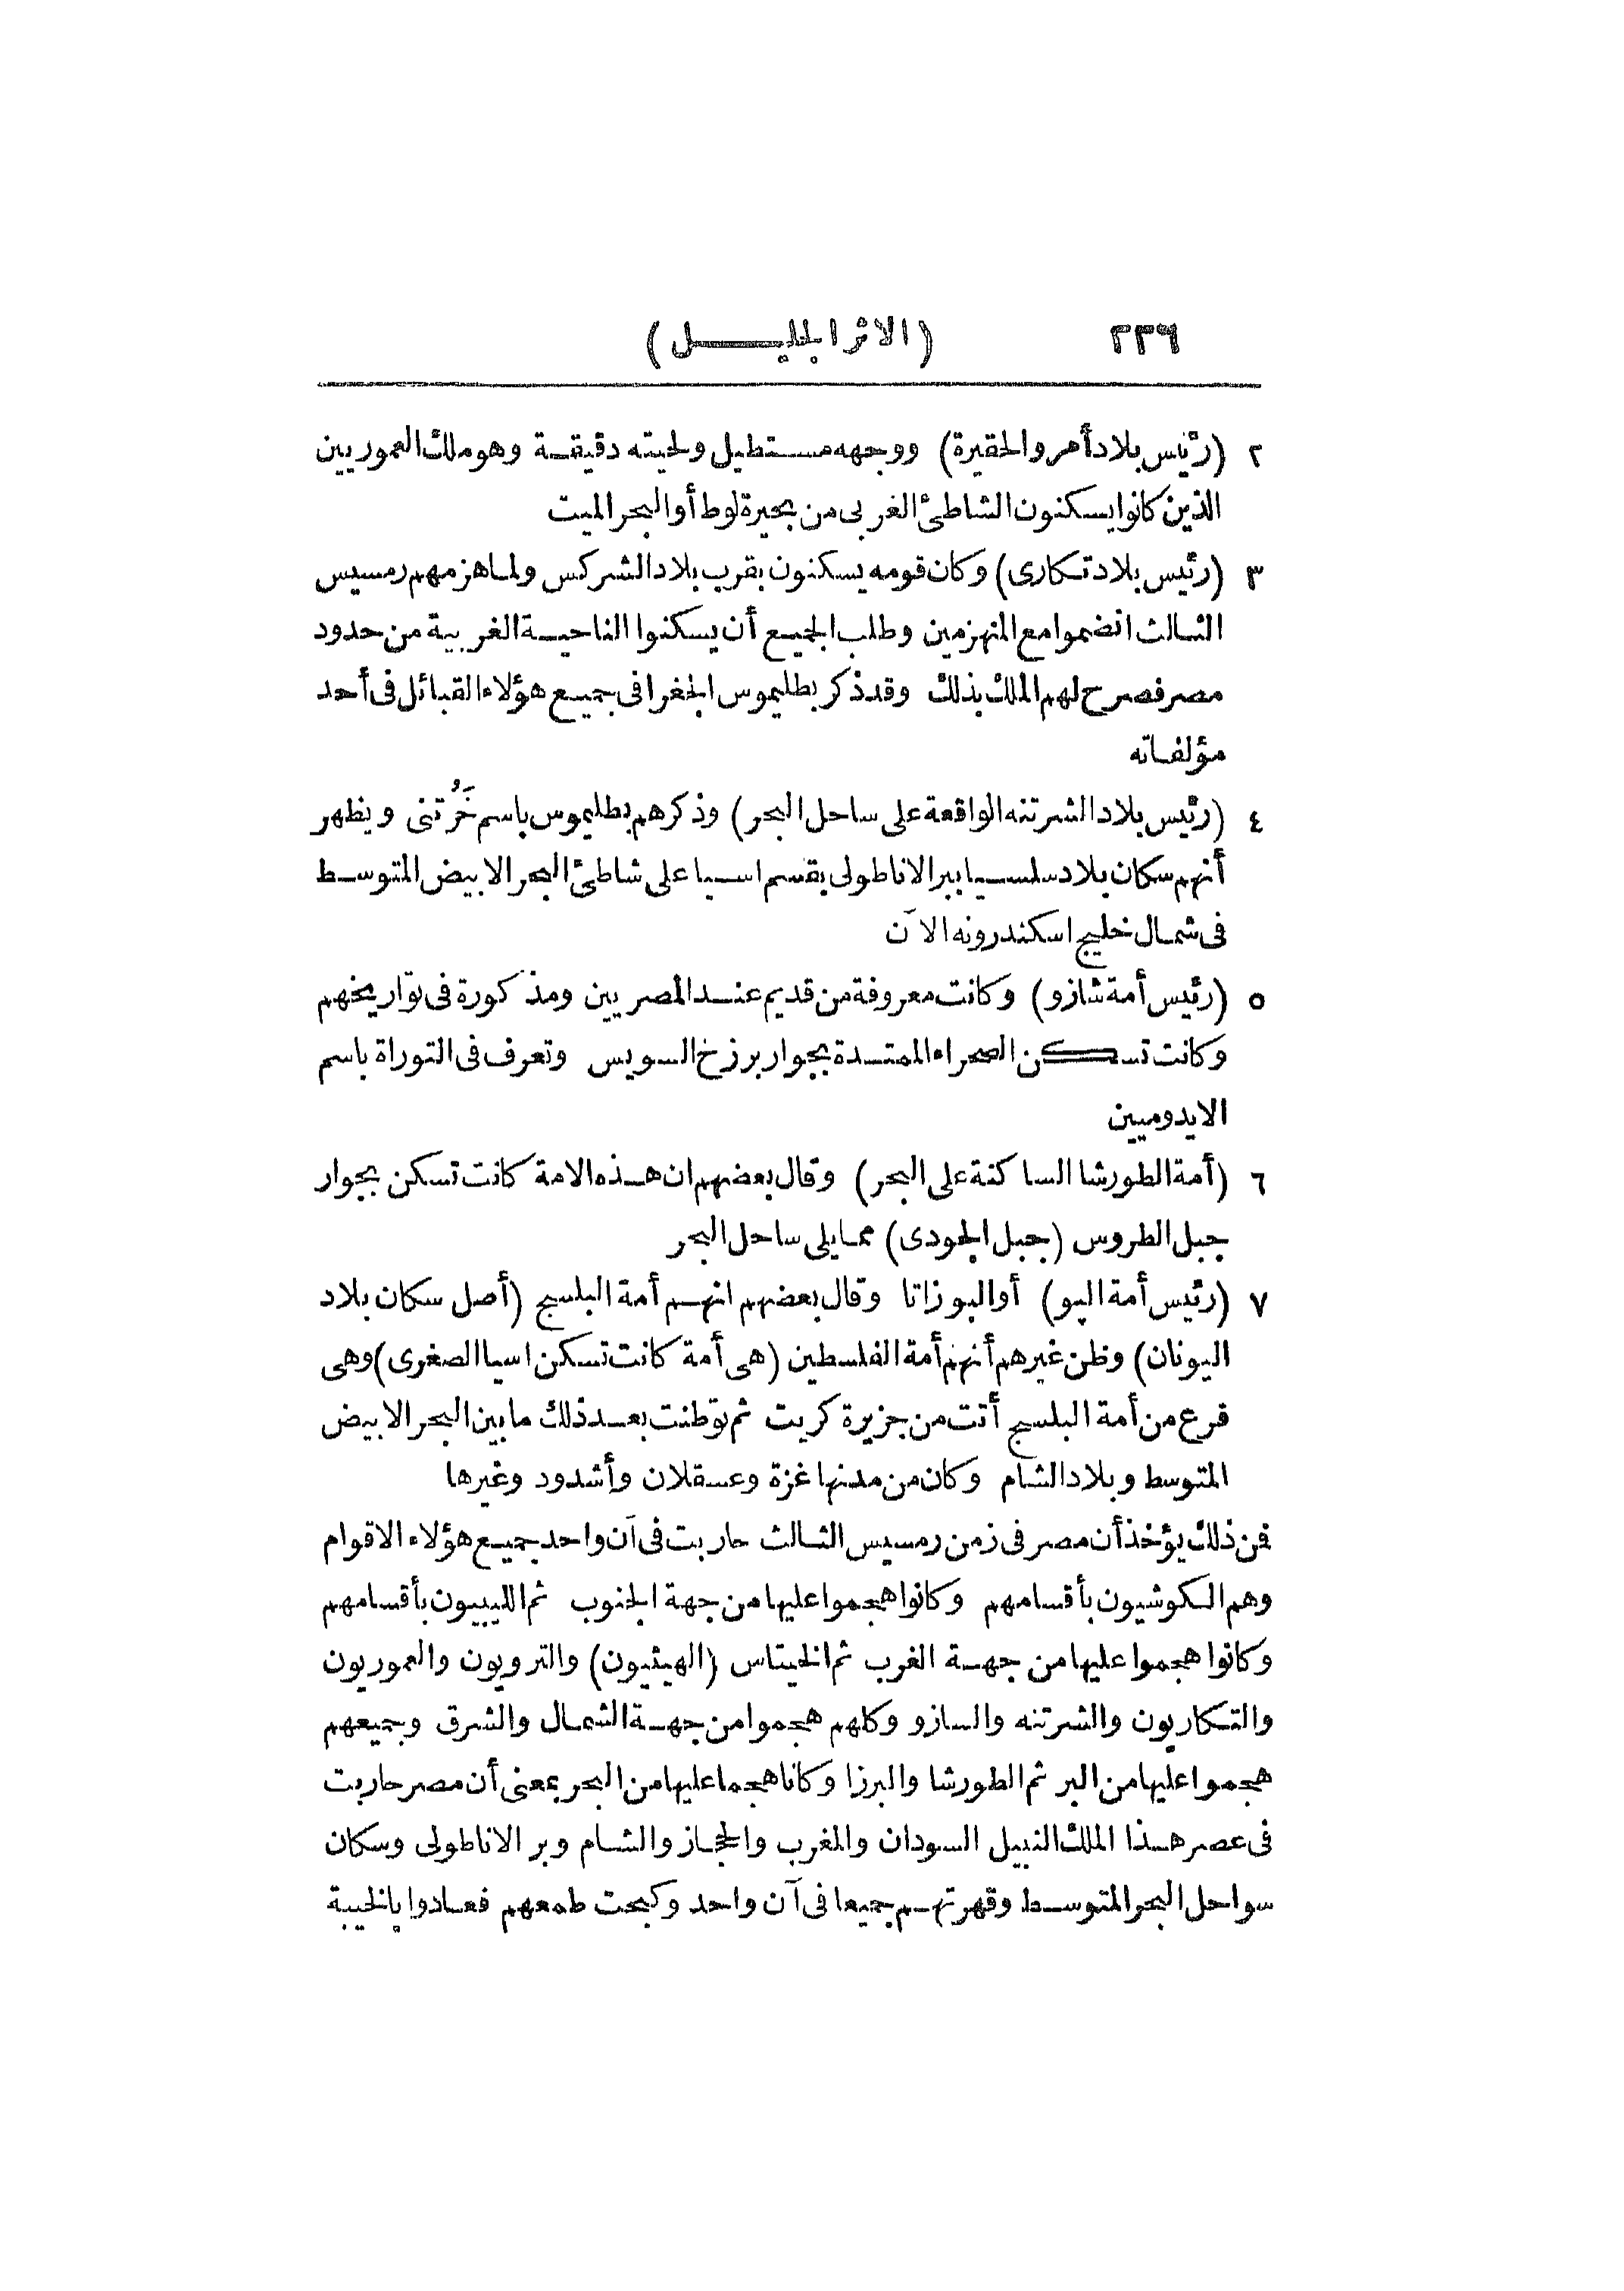 ٢٣٦ (الاثر الجليل)
٢ (رئيس بلاد أمر والحقيرة) ووجهه مستطيل ولحيته دقيقة وهو ملك العموريين
الذين كانوا يسكنون الشاطئ الغربى من بحيرة لوط أو البحر الميت
٣ (رئيس بلاد تكارى) وكان قومه يسكنون بقرب بلاد الشركس ولما هزمهم رمسيس
الثالث انضموا مع المنهزمين وطلب الجميع أن يسكنوا الناحية الغربية من حدود
مصر فصرح لهم الملك بذلك وقد ذكر بطليموس الجغرافى جميع هؤلاء القبائل فى أحد
مؤلفاته
٤ (رئيس بلاد الشرتنه الواقعة على ساحل البحر) وذكرهم بطليموس باسم خَرُتنى ويظهر
أنهم سكان بلاد سلسيا ببر الاناطولى بقسم اسيا على شاطئ البحر الابيض المتوسط
فى شمال خليج اسكندرونه الآن
٥ (رئيس أمة شازو) وكانت معروفة من قديم عند المصريين ومذكورة فى تواريخهم
وكانت تسكن الصحراء الممتدة بجوار برزخ السويس وتعرف فى التوراة باسم
الايدوميين
٦ (أمة الطورشا الساكنة على البحر) وقال بعضهم ان هذه الامة كانت تسكن بجوار
جبل الطروس (جبل الجودى) مما يلى ساحل البحر
٧ (رئيس أمة الپو) أو الپوزاتا وقال بعضهم انهم أمة البلسج (أصل سكان بلاد
اليونان) وظن غيرهم أنهم أمة الفلسطين (هى أمة كانت تسكن اسيا الصغرى) وهى
فرع من أمة البلسج أتت من جزيرة كريت ثم توطنت بعد ذلك ما بين البحر الابيض
المتوسط وبلاد الشام وكان من مدنها غزة وعسقلان وأشدود وغيرها
فمن ذلك يؤخذ أن مصر فى زمن رمسيس الثالث حاربت فى آن واحد جميع هؤلاء الاقوام
وهم الكوشيون بأقسامهم وكانوا هجموا عليها من جهة الجنوب ثم الليبيون بأقسامهم
وكانوا هجموا عليها من جهة الغرب ثم الخيتاس (الهيثيون) والترويون والعموريون
والتكاريون والشرتنه والسازو وكلهم هجموا من جهة الشمال والشرق وجميعهم
هجموا عليها من البر ثم الطورشا والبرزا وكانا هجما عليها من البحر بمعنى أن مصر حاربت
فى عصر هذا الملك النبيل السودان والمغرب والحجاز والشام وبر الاناطولى وسكان
سواحل البحر المتوسط وقهرتهم جميعا فى آن واحد وكبحت طمعهم فعادوا بالخيبة